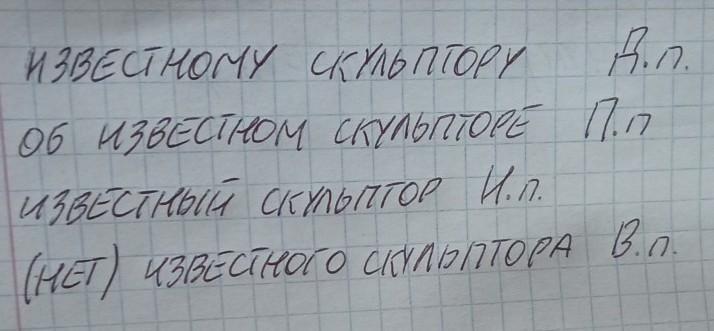 ИЗВЕСТНОМУ СКУЛЬПТОРУ Д.п.
ОБ ИЗВЕСТНОМ СКУЛЬПТОРЕ П.п
ИЗВЕСТНЫЙ СКУЛЬПТОР И.п.
(НЕТ) ИЗВЕСТНОГО СКУЛЬПТОРА В.п.